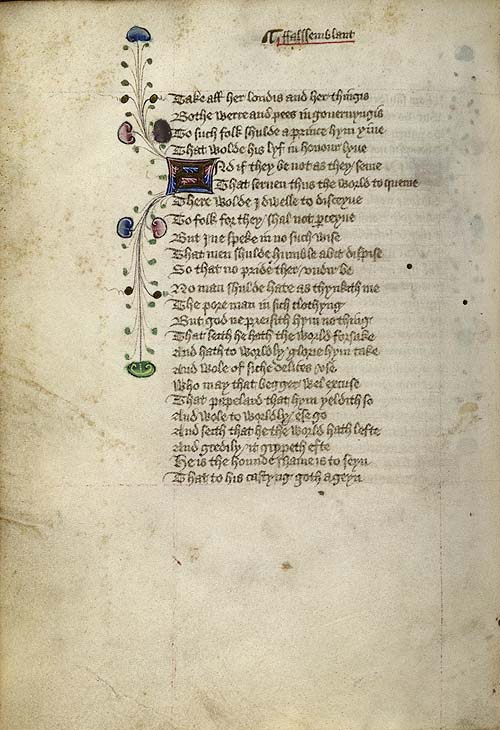 ffalssemblant
Take all her londis and her thingis
Bothe werre and pees in gouernyngis
To such folk shulde a prince hym yiue
That wolde his lyf in honour lyue
And if they be not as they seme
That seruen thus the world to queme
There wolde I dwelle to disceyue
To folk for they shal not perceyue
But I ne speke in no such wise
That men shulde humble abit dispise
So that no pride ther vndir be
No man shulde hate as thynkith me
The pore man in sich clothyng
But god ne preisith hym no thing
That seith he hath the world forsake
And hath to worldly glorie hym take
And wole of siche delites vse
Who may that begger wel excuse
That papelard that hym yeldith so
And wole to worldly ese go
And seith that he the world hath lefte
And gredily it grypeth efte
He is the hounde shame is to seyn
That to his castyng goth ageyn